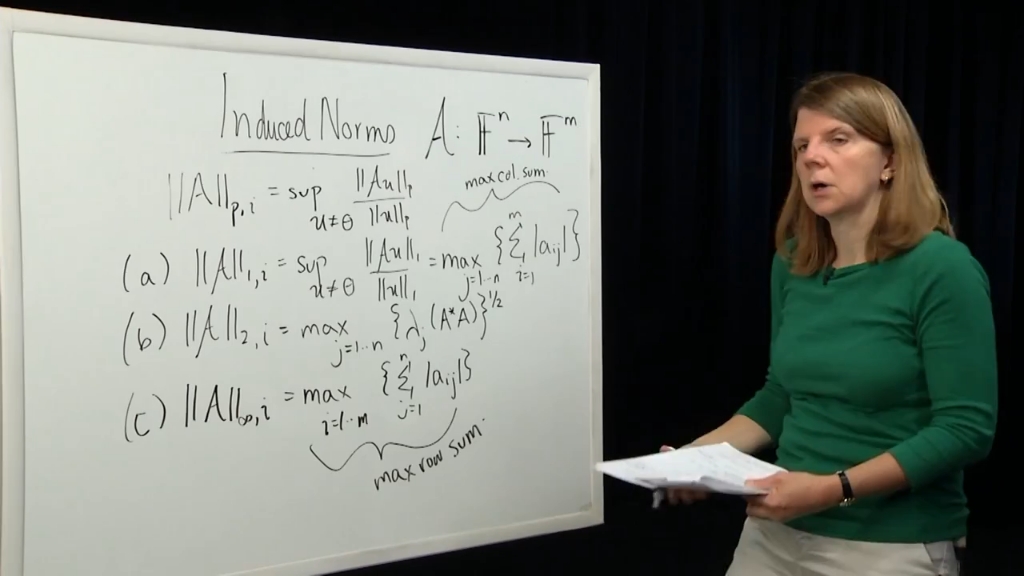 Induced Norms A: 𝔽ⁿ → 𝔽ᵐ
||A||_{p,i} = sup_{u≠θ} ||Au||_p / ||u||_p
max col. sum.
(a) ||A||_{1,i} = sup_{u≠θ} ||Au||_1 / ||u||_1 = max_{j=1..n} {∑_{i=1}^{m} |a_{ij}|}
(b) ||A||_{2,i} = max_{j=1..n} {λ_j (A*A)}^{1/2}
(c) ||A||_{∞,i} = max_{i=1..m} {∑_{j=1}^{n} |a_{ij}|}
max row sum.